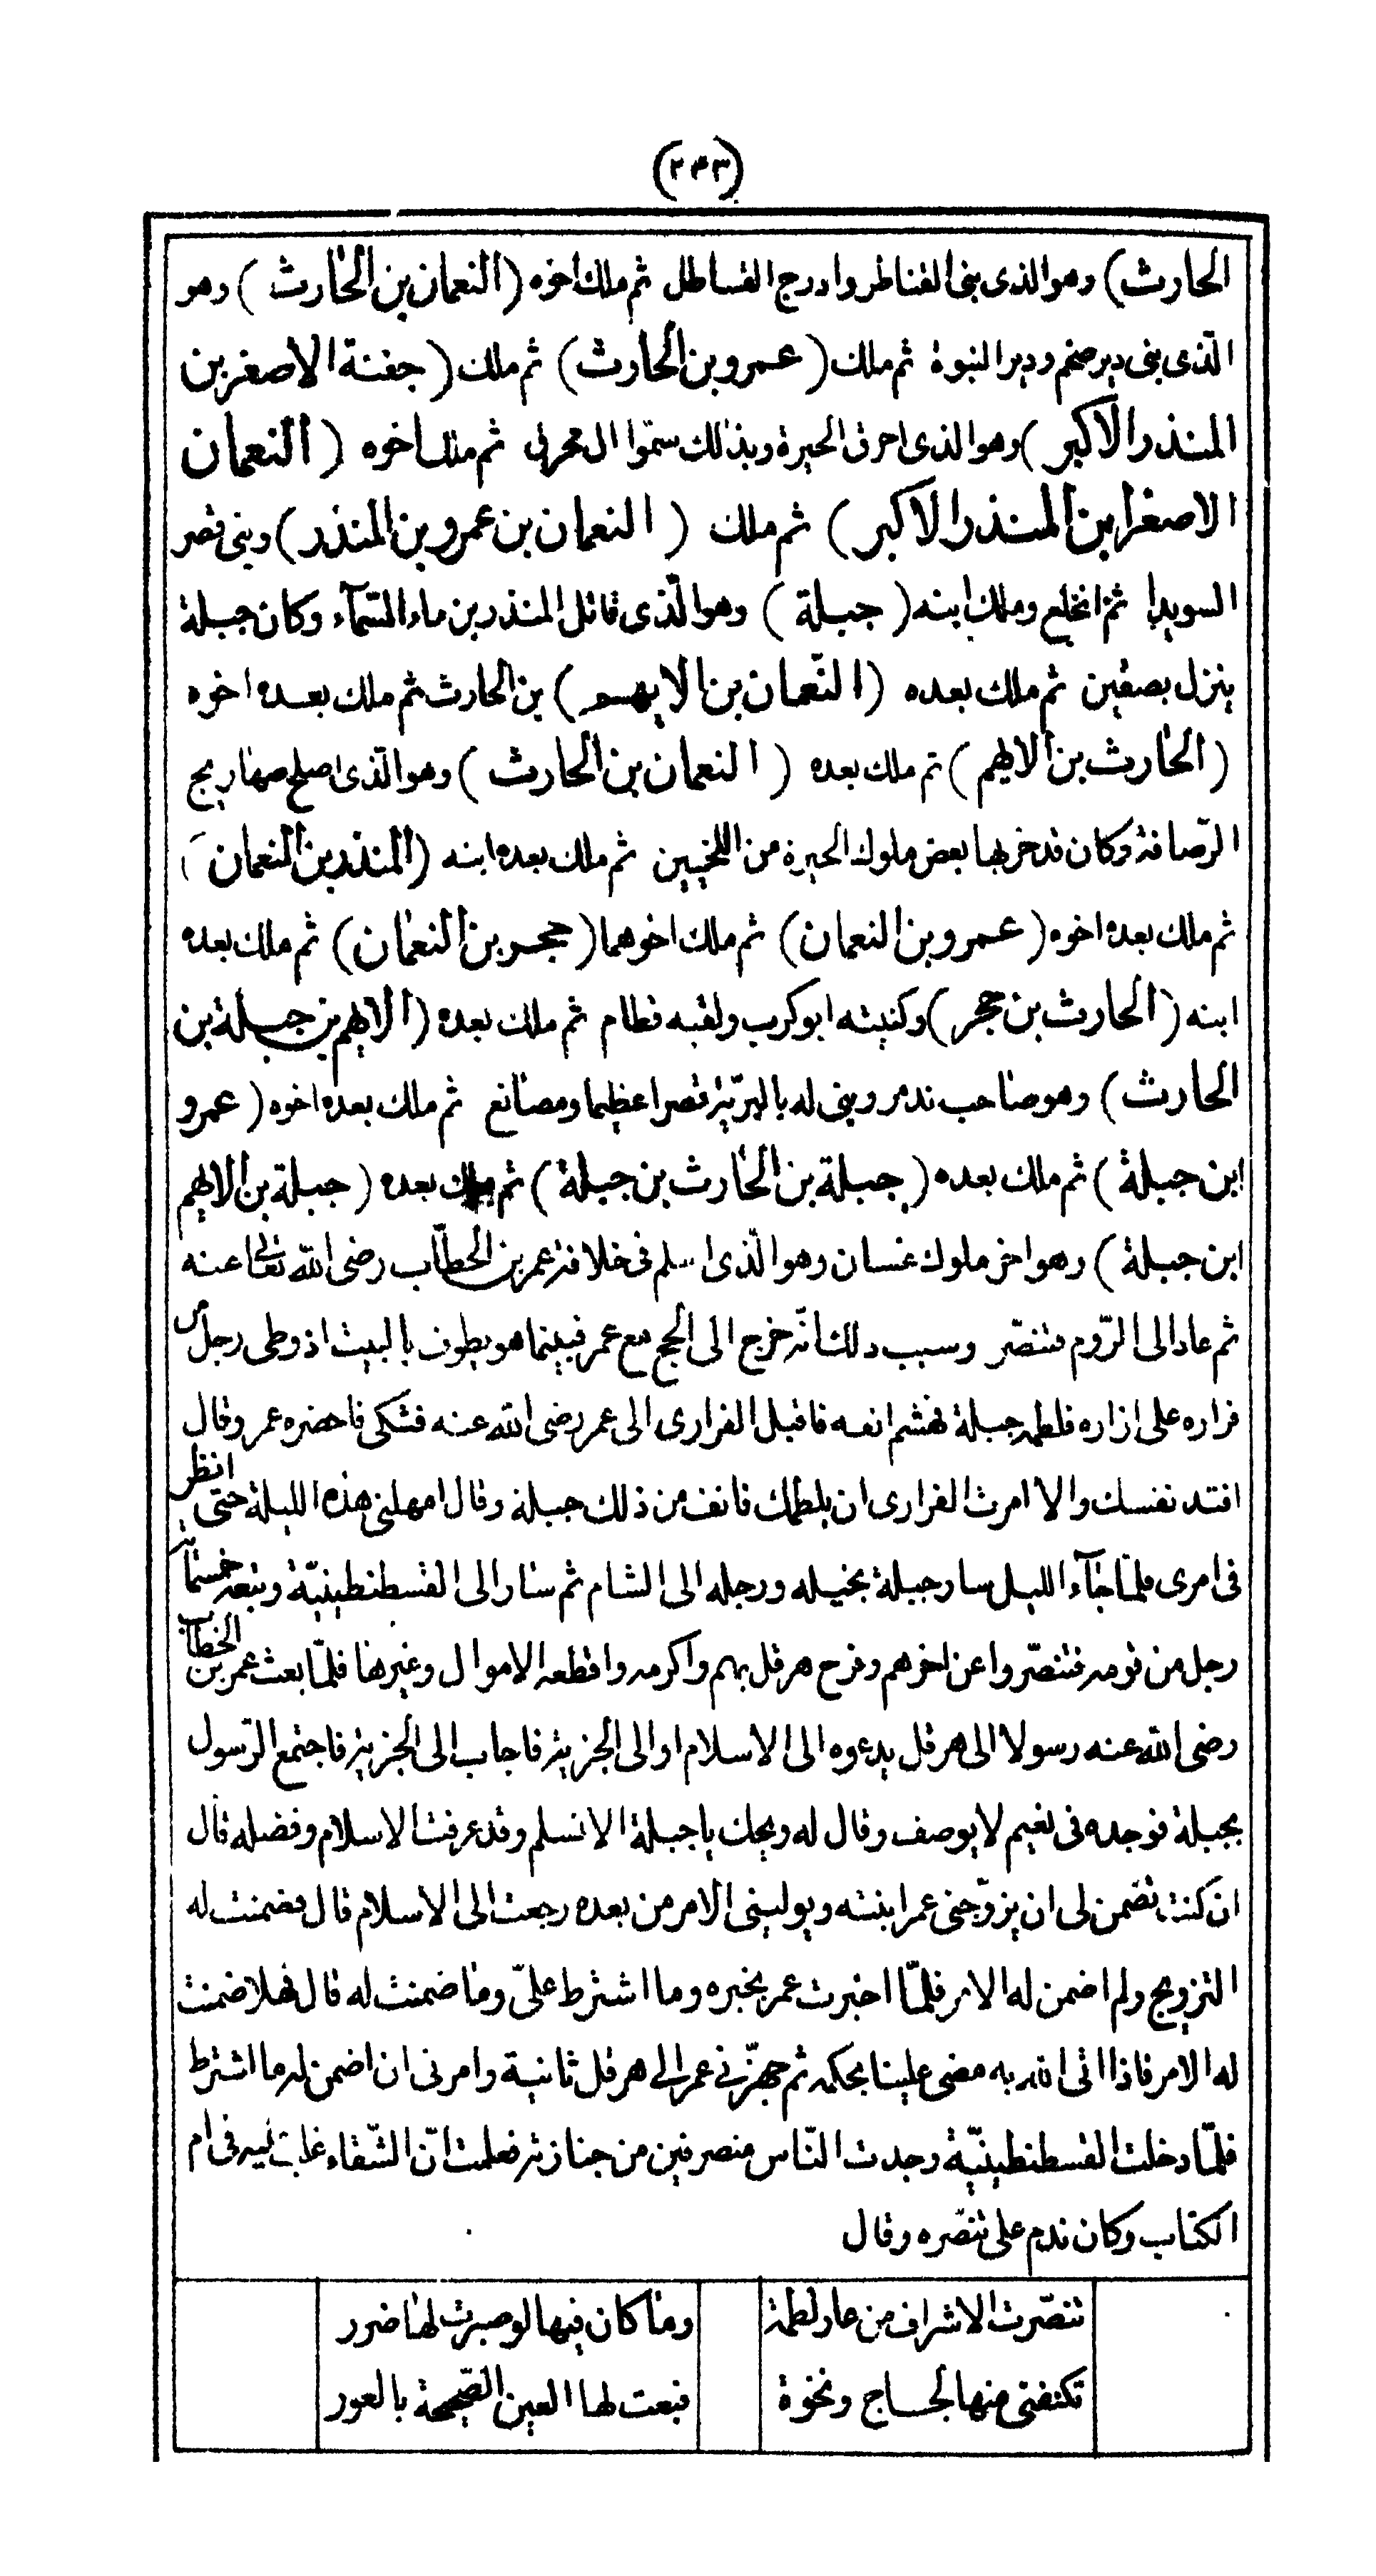 (٢٤٣)
الحارث) وهو الذى بنى القناطر وادرج القساطل ثم ملك اخوه (النعمان بن الحارث) وهو
الّذى بنى دير ضخم ودير النبوة ثم ملك (عمرو بن الحارث) ثم ملك (جفنة الاصغر بن
المنذر الاكبر) وهو الذى احرق الحيرة وبذلك سمّوا ال محرق ثم ملك اخوه (النعمان
الاصغر ابن المنذر الاكبر) ثم ملك (النعمان بن عمرو بن المنذر) وبنى قصر
السويدا ثم انخلع وملك ابنه (جبلة) وهو الّذى قاتل المنذر بن ماء السّمآء وكان جبلة
ينزل بصفين ثم ملك بعده (النّعمان بن الايهم) بن الحارث ثم ملك بعده اخوه
(الحارث بن الايهم) ثم ملك بعده (النعمان بن الحارث) وهو الّذى اصلح صهاريج
الرّصافة وكان قد خربها بعض ملوك الحيرة من اللخميين ثم ملك بعده ابنه (المنذر بن النعمان)
ثم ملك بعده اخوه (عمرو بن النعمان) ثم ملك اخوهما (حجر بن النعمان) ثم ملك بعده
ابنه (الحارث بن حجر) وكنيته ابو كرب ولقبه قطام ثم ملك بعده (الايهم بن جبلة بن
الحارث) وهو صاحب تدمر وبنى له بالبرّيّة قصرا عظيما ومصانع ثم ملك بعده اخوه (عمرو
ابن جبلة) ثم ملك بعده (جبلة بن الحارث بن جبلة) ثم ملك بعده (جبلة بن الايهم
ابن جبلة) وهو اخر ملوك غسان وهو الّذى اسلم فى خلافة عمر بن الخطّاب رضى الله تعالى عنه
ثم عاد الى الرّوم فتنصّر وسبب ذلك انّه خرج الى الحج مع عمر فبينما هو يطوف بالبيت اذ وطى رجل من
فزاره على ازاره فلطمه جبلة فهشم انفه فاقبل الفزارى الى عمر رضى الله عنه فشكى فاحضره عمر وقال
افتد نفسك والا امرت الفزارى ان يلطمك فانف من ذلك جبلة وقال امهلنى هذه الليلة حتى انظر
فى امرى فلمّا جآء الليل سار جبلة بخيله ورجله الى الشام ثم سار الى القسطنطينيّة وتبعه خمسمائة
رجل من قومه فتنصّروا عن اخرهم وفرح هرقل بهم واكرمه واقطعه الاموال وغيرها فلمّا بعث عمر بن الخطاب
رضى الله عنه رسولا الى هرقل يدعوه الى الاسلام او الى الجزية فاجاب الى الجزية فاجتمع الرّسول
بجبلة فوجده فى نعيم لا يوصف وقال له ويحك يا جبلة الا تسلم وقد عرفت الاسلام وفضله قال
ان كنت تضمن لى ان يزوّجنى عمر ابنته ويولينى الامر من بعده رجعت الى الاسلام قال فضمنت له
التزويج ولم اضمن له الامر فلمّا اخبرت عمر بخبره وما اشترط علىّ وما ضمنت له قال فهلا ضمنت
له الامر فاذا اتى الله به مضى علينا بحكمه ثم جهّزنى عمر الى هرقل ثانية وامرنى ان اضمن له ما اشترط
فلمّا دخلت القسطنطينيّة وجدت النّاس منصرفين من جنازته فعلمت انّ الشّقاء غلب عليه فى ام
الكتاب وكان ندم على تنصّره وقال
تنصّرت الاشراف من عار لطمة وما كان فيها لو صبرت لها ضرر
تكنفنى منها لجاج ونخوة فبعت لها العين الصّحيحة بالعور